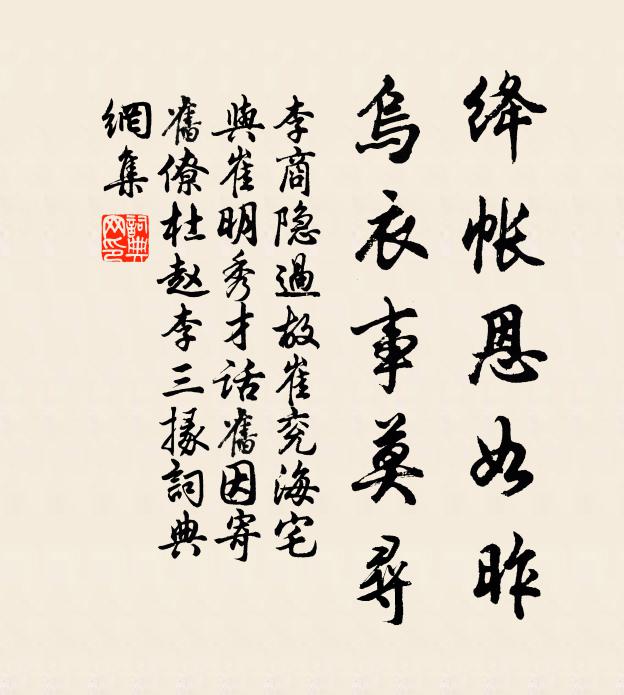 绛帐恩如昨
烏衣事莫尋
李商隐過故崔兖海宅
與崔明秀才話舊因寄
舊僚杜赵李三掾詞典
網集
詞典
网印